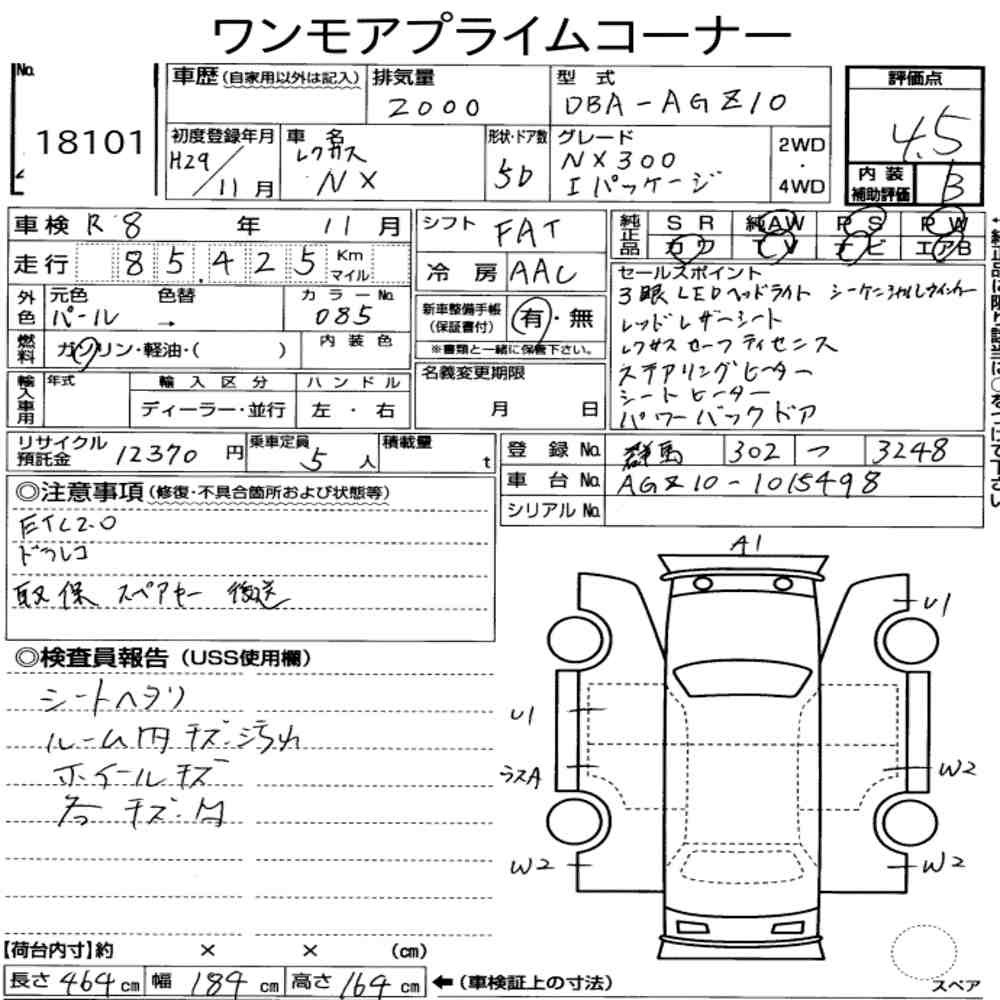 ワンモアプライムコーナー
No. 18101
車歴(自家用以外は記入)
排気量 2000
型式 DBA-AGZ10
評価点 4.5
内装補助評価 B
初度登録年月 H29/11月
車名 レクサス NX
形状・ドア数 5D
グレード NX300 Iパッケージ
2WD・4WD
車検 R8年 11月
走行 85,425 Km マイル
シフト FAT
冷房 AAC
純正品 SR 純AW PS PW
カワ TV ナビ エアB
外色 元色 パール 色替 → カラーNo. 085
燃料 ガソリン・軽油・( ) 内装色
新車整備手帳(保証書付) 有・無
※書類と一緒に保管下さい。
セールスポイント
3眼LEDヘッドライト シーケンシャルウインカー
レッドレザーシート
レクサスセーフティセンス
ステアリングヒーター
シートヒーター
パワーバックドア
輸入車用 年式 輸入区分 ハンドル
ディーラー・並行 左・右
名義変更期限 月 日
リサイクル預託金 12370円
乗車定員 5人
積載量 t
登録No. 群馬 302 つ 3248
車台No. AGZ10-1015498
シリアルNo.
◎注意事項(修復・不具合箇所および状態等)
ETC2.0
ドラレコ
取 保 スペアキー 後送
◎検査員報告(USS使用欄)
シートヘタリ
ルーム内キズ・汚れ
ホイールキズ
各キズ・凹
A1
U1
U1
ラスA
W2
W2
W2
スペア
【荷台内寸】約 × × (cm)
長さ 464cm 幅 184cm 高さ 164cm ←(車検証上の寸法)